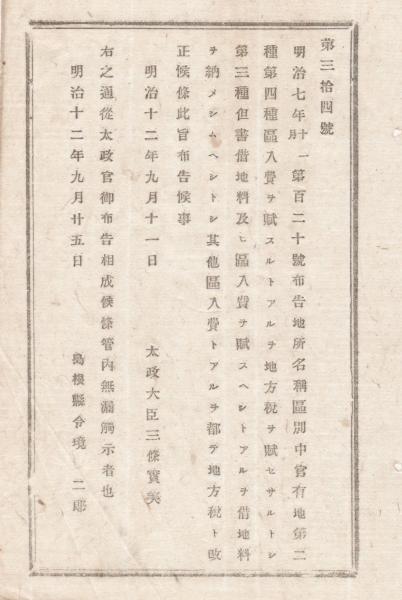 第三拾四號
明治七年十一月第百二十號布告地所名稱區別中官有地第二
種第四種區入費ヲ賦スルトアルヲ地方稅ヲ賦セサルトシ
第三種但書借地料及ヒ區入費ヲ賦スヘシトアルヲ借地料
ヲ納メシムヘシトシ其他區入費トアルヲ都テ地方稅ト改
正候條此旨布告候事
明治十二年九月十一日
太政大臣三條實美
右之通從太政官御布告相成候條管內無漏觸示者也
明治十二年九月廿五日
島根縣令境二郎